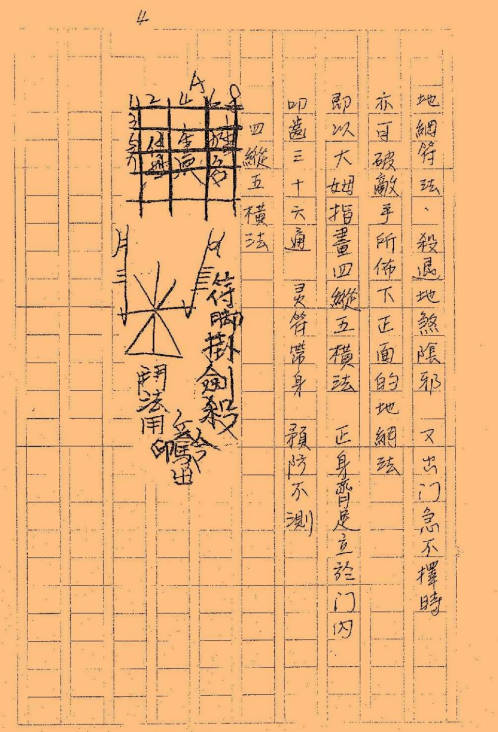 4
地網符法、殺退地煞陰邪 又出门急不擇時
亦可破敵手所佈下正面的地網法
即以大姆指畫四縱五橫法 正身齊足立於门內
叩齒三十六通 灵符帶身 預防不測
四縱五橫法
符脚掛劍殺
鬥法用